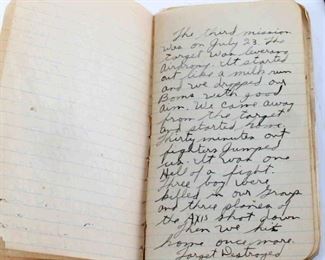 The third mission
was on July 23. The
target was Leverano
Airdrome. It started
out like a milk run
and we dropped our
Bombs with good
aim. We came away
from the target
and started home
Thirty minutes out
fighters jumped
us. It was one
Hell of a fight.
Three boy were
killed in our Group
and three planes of
the Axis shot down
Then we hit
home once more.
Target Destroyed